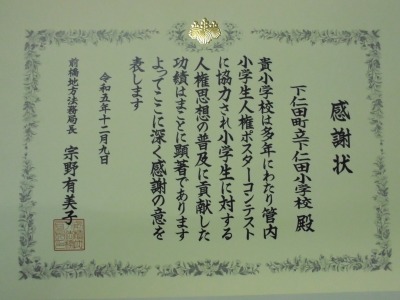 感謝状
下仁田町立下仁田小学校 殿
貴小学校は多年にわたり管内
小学生人権ポスターコンテスト
に協力され小学生に対する
人権思想の普及に貢献した
功績はまことに顕著であります
よってここに深く感謝の意を
表します
令和五年十二月九日
前橋地方法務局長 宗野有美子